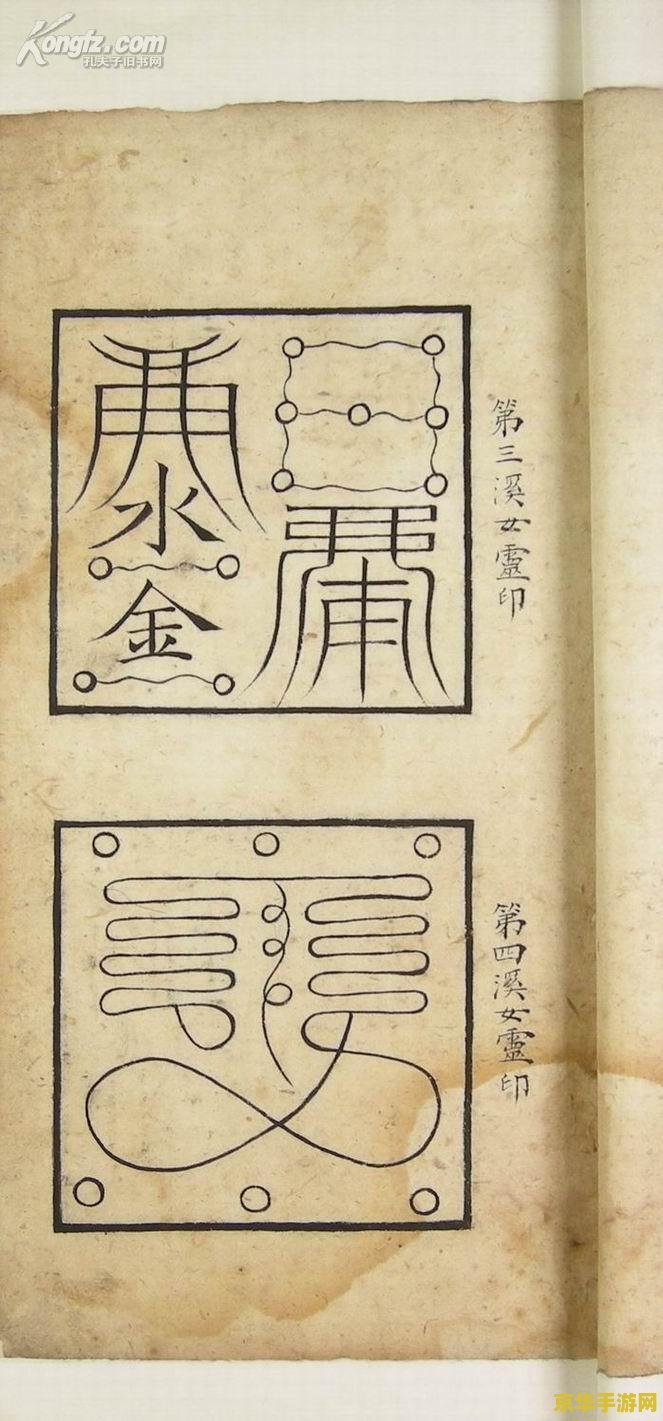 Kongfz.com
孔夫子旧书网
第三溪女靈印
水
金
第四溪女靈印
京华手游网